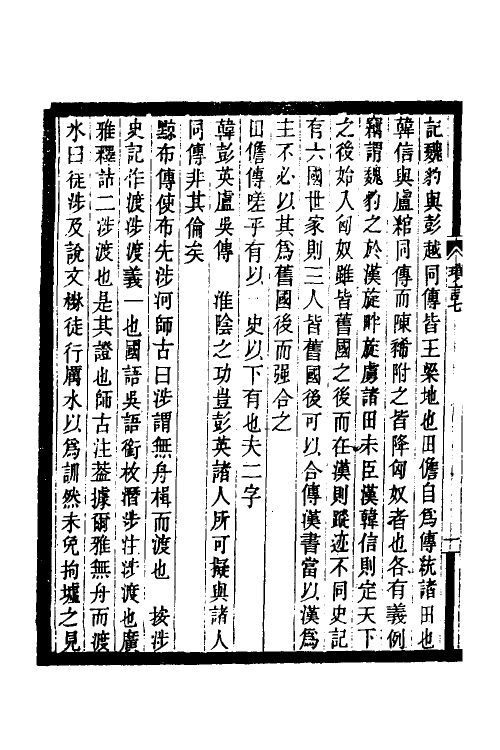 記魏豹與彭越同傳皆王梁地也田儋自為傳統諸田也
韓信與盧綰同傳而陳豨附之皆降匈奴者也各有義例
竊謂魏豹之於漢旋畔旋虜諸田未臣漢韓信則定天下
之後始入匈奴雖皆舊國之後而在漢則蹤迹不同史記
有六國世家則三人皆舊國後可以合傳漢書當以漢為
主不必以其為舊國後而强合之
田儋傳嗟乎有以　史以下有也夫二字
韓彭英盧吳傳　淮陰之功豈彭英諸人所可擬與諸人
同傳非其倫矣
黥布傳使布先涉河師古曰涉謂無舟楫而渡也　按涉
史記作渡涉渡義一也國語吳語銜枚潛涉注涉渡也廣
雅釋詁二涉渡也是其證也師古注葢據爾雅無舟而渡
水曰徒涉及說文㵝徒行厲水以為訓然未免拘墟之見